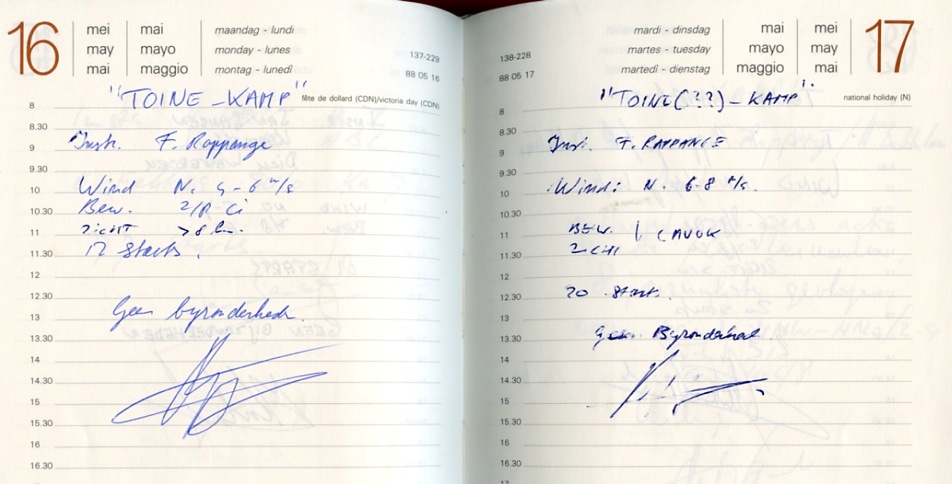 16
mei mai maandag - lundi
may mayo monday - lunes
mai maggio montag - lunedì
137-229
88 05 16
"TOINE-KAMP"
fête de dollard (CDN)/victoria day (CDN)
8
8.30
Instr. F. Rappange
9
9.30
Wind N.
10
Bew. Ci
10.30
zicht
11
12 Starts.
11.30
12
12.30
Geen byzonderhede.
13
13.30
14
14.30
15
15.30
16
16.30
17
mardi - dinsdag mai mei
martes - tuesday mayo may
martedì - dienstag maggio mai
138-228
88 05 17
"TOINE(??)-KAMP"
national holiday (N)
8
8.30
Inst. F. RAPPANGE
9
9.30
Wind: N. 6-8 m/s.
10
10.30
BEW. CAVOK
11
11.30
12
20 Starts.
12.30
13
geen
13.30
14
14.30
15
15.30
16
16.30